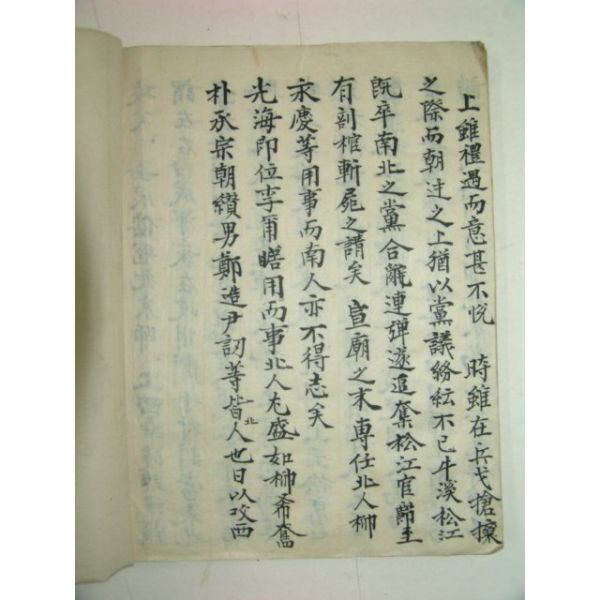 上雖禮過而意甚不悅 時雖在兵戈搶攘
之際而朝廷之上猶以黨議紛紜不已牛溪松江
旣卒南北之黨合辭連彈遂追奪松江官爵至
有剖棺斬屍之請矣 宣廟之末專任北人柳
永慶等用事而南人亦不得志矣
光海卽位李爾瞻用而事北人尤盛如柳希奮
朴承宗朝纘男鄭造尹訒等皆北人也日以攻西